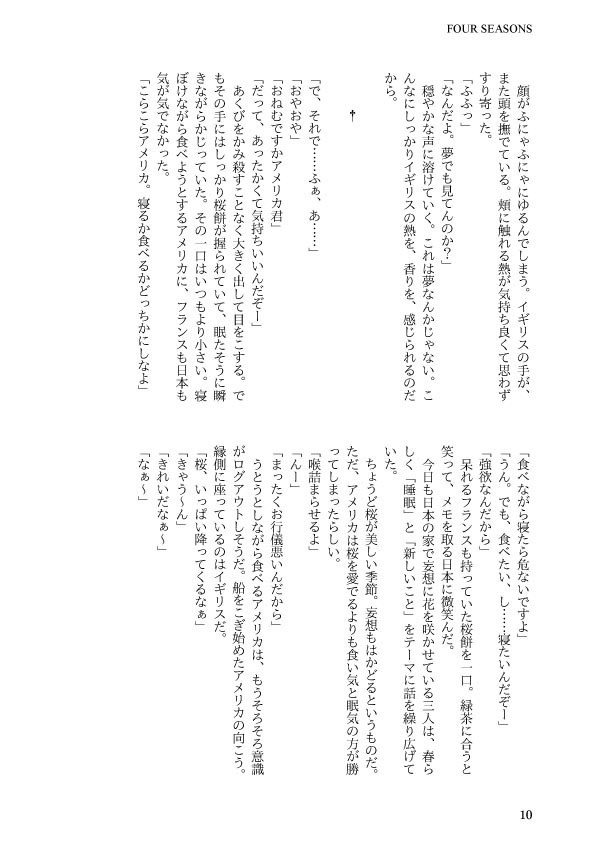 FOUR SEASONS
　顔がふにゃふにゃにゆるんでしまう。イギリスの手が、
また頭を撫でている。頬に触れる熱が気持ち良くて思わず
すり寄った。
「ふふっ」
「なんだよ。夢でも見てんのか？」
　穏やかな声に溶けていく。これは夢なんかじゃない。こ
んなにしっかりイギリスの熱を、香りを、感じられるのだ
から。
†
「で、それで……ふぁ、あ……」
「おやおや」
「おねむですかアメリカ君」
「だって、あったかくて気持ちいいんだぞー」
　あくびをかみ殺すことなく大きく出して目をこする。で
もその手にはしっかり桜餅が握られていて、眠たそうに瞬
きながらかじっていた。その一口はいつもより小さい。寝
ぼけながら食べようとするアメリカに、フランスも日本も
気が気でなかった。
「こらこらアメリカ。寝るか食べるかどっちかにしなよ」
「食べながら寝たら危ないですよ」
「うん。でも、食べたい、し……寝たいんだぞー」
「強欲なんだから」
　呆れるフランスも持っていた桜餅を一口。緑茶に合うと
笑って、メモを取る日本に微笑んだ。
　今日も日本の家で妄想に花を咲かせている三人は、春ら
しく「睡眠」と「新しいこと」をテーマに話を繰り広げて
いた。
　ちょうど桜が美しい季節。妄想もはかどるというものだ。
ただ、アメリカは桜を愛でるよりも食い気と眠気の方が勝
ってしまったらしい。
「喉詰まらせるよ」
「んー」
「まったくお行儀悪いんだから」
　うとうとしながら食べるアメリカは、もうそろそろ意識
がログアウトしそうだ。船をこぎ始めたアメリカの向こう。
縁側に座っているのはイギリスだ。
「桜、いっぱい降ってくるなぁ」
「きゃう〜ん」
「きれいだなぁ〜」
「なぁ〜」
10